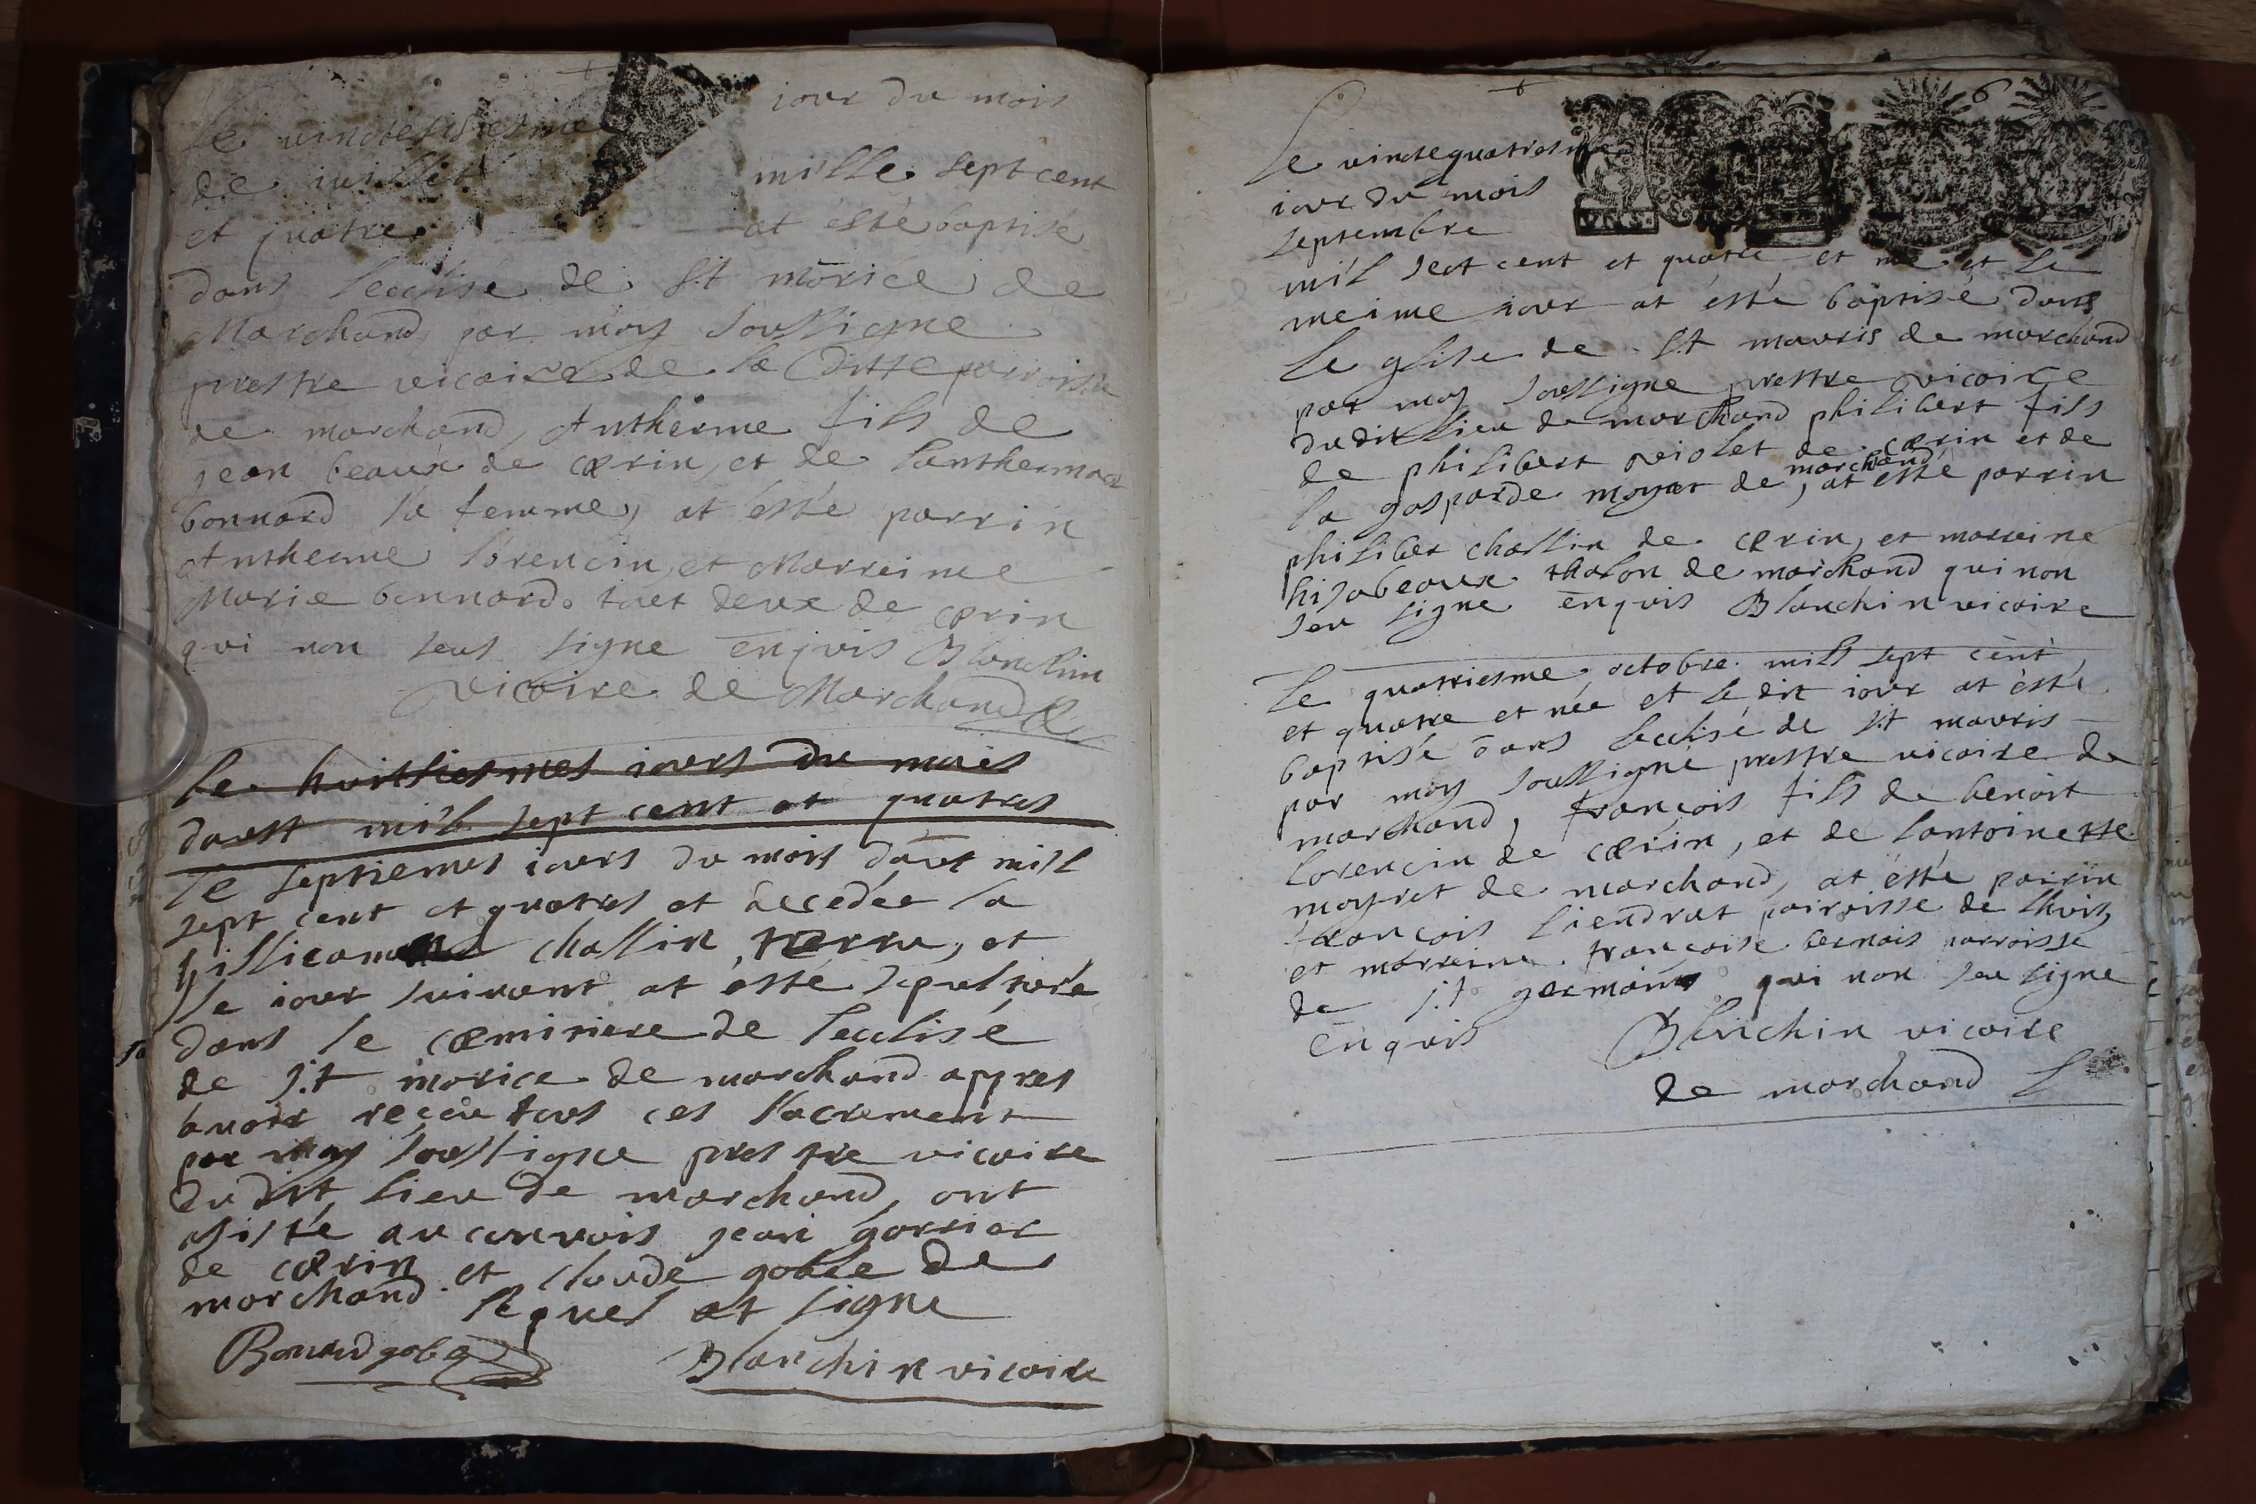 iour du mois
Le
de iuillet mille sept cent
et quatre at esté baptisé
dans leeclise de s.t morice de
Marchand par moy soussigne
prestre vicaire de la ditte parroisse
de marchand, Antherme fils de
jean beaux de cœrin, et de
bonnard sa femme, at esté parrin
Antherme lorencin, et Marreinne
Marie bonnard. tuet deux de cœrin
qui non seus signe enquis Blanchin
vicaire de Marchand
le huitliesmes iours du mois
daust mil sept cent et quatres
le septiemes iours du mois daut mill
sept cent et quatres et decedée la
chaslin, et
le iour suivant at esté sepulturé
dans le cœmitiere de leeclisé
de s.t morice de marchand appres
avoir reçeu tous ces sacrement
par moy soussigne prestre vicaire
du dit lieu de marchand, ont
asisté au convois jean gorrier
de cœrin et claude gobée de
marchand. lequel at signe
Blanchin vicaire
6
le vintequatriesme
iour du mois
septembre
mil sect cent et quatre et né et le
meime iour at ésté baptisé dans
le glise de s.t mauris de marchand
par moy soussigne prestre vicaire
dudit lieu de marchand philibert fils
de philibert violet de cœrin et de
marchand
la gasparde moyret de, at esté parrin
philiber chaslin de cœrin, et marreine
hisabeaux thalon de marchand qui non
seu signe enquis Blanchin vicaire
Le quatriesme octobre mils sept cènt
et quatre et née et le dit iour at èsté
baptisé dans leeclisé de s.t mauris
par moy soussigné prestre vicaire de
marchand, françois fils de benoit
lorencin de cœrin, et de lantoinette
moyret de marchand, at été pairin
françois liendrat pairoisse de
et marreine françoise parroisse
de s.t germain qui non seu signe
enquis Blanchin vicaire
de marchand